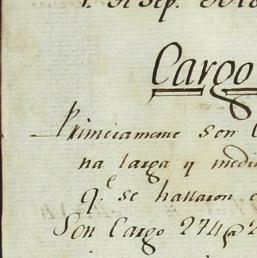 Cargo
Primeramente son
na larga y medi
q.e se hallaron e
Son Cargo 274@2